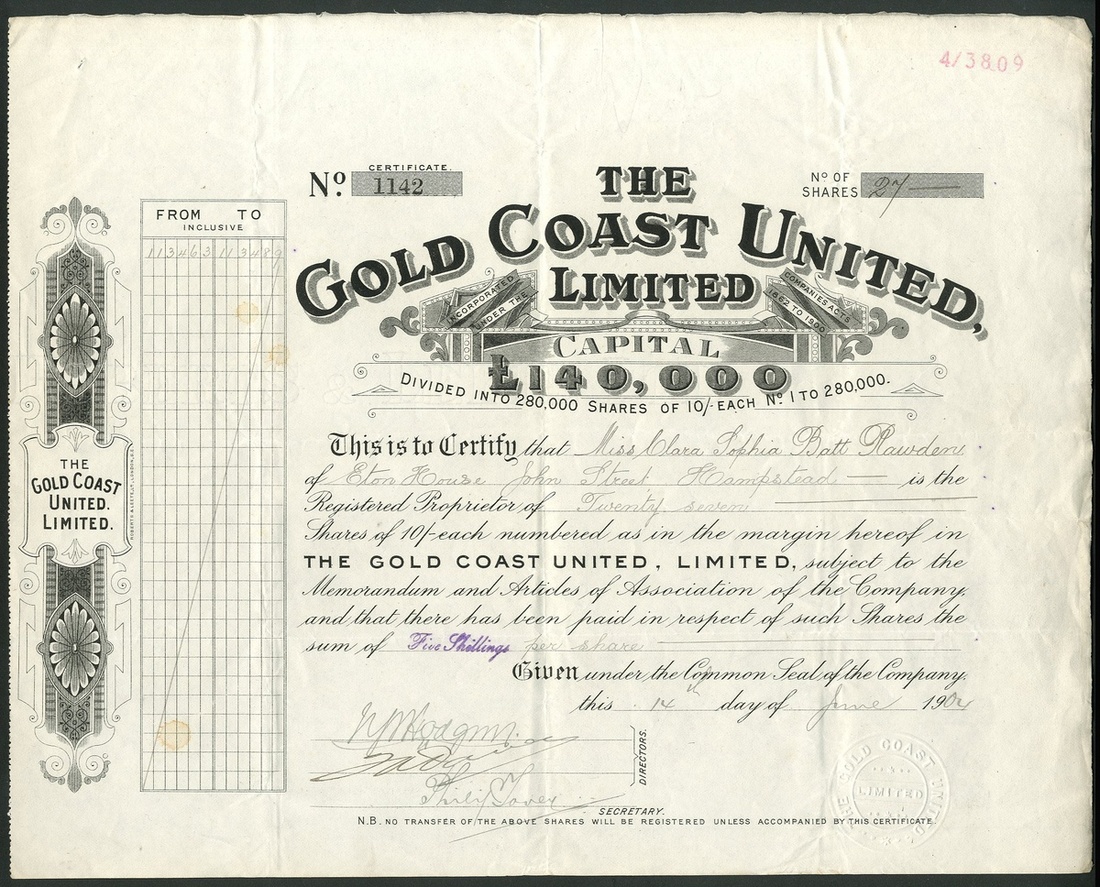 4/3809
CERTIFICATE.
No. 1142
No OF SHARES 27
THE
GOLD COAST UNITED,
LIMITED
INCORPORATED UNDER THE
COMPANIES ACTS 1862 TO 1900
CAPITAL
£140,000
DIVIDED INTO 280,000 SHARES OF 10/- EACH No. 1 TO 280,000.
FROM TO
INCLUSIVE
113463 113489
THE
GOLD COAST
UNITED.
LIMITED.
This is to Certify that Miss Clara Sophia Batt Rawden
of Eton House John Street Hampstead — is the
Registered Proprietor of Twenty seven
Shares of 10/- each numbered as in the margin hereof in
THE GOLD COAST UNITED, LIMITED, subject to the
Memorandum and Articles of Association of the Company,
and that there has been paid in respect of such Shares the
sum of Five Shillings per share
Given under the Common Seal of the Company,
this 14th day of June 1904
DIRECTORS.
SECRETARY.
N.B. NO TRANSFER OF THE ABOVE SHARES WILL BE REGISTERED UNLESS ACCOMPANIED BY THIS CERTIFICATE.
THE GOLD COAST UNITED
LIMITED